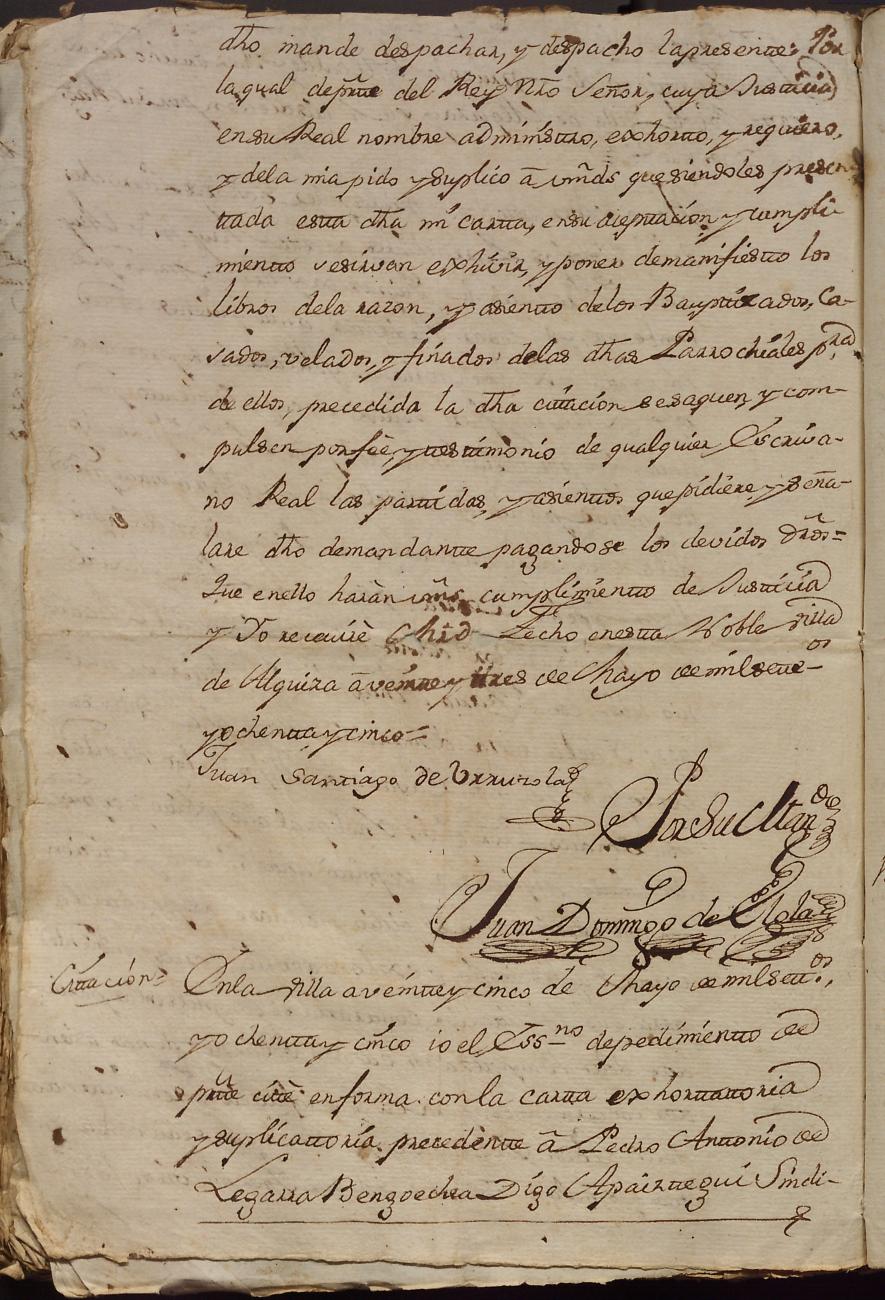 dho mande despachar, y despacho lapresente: Por
la qual depte del Rey Nro Señor, cuya Justicia
ensu Real nombre administro, exhorto, y requiero,
y dela mia pido y suplico â vmds que siendoles presen-
tada esta dha mi carta, ensu aceptacion y cumpli-
miento sesirvan exhivir, y poner demanifiesto los
libros dela razon, y asiento delos Bauptizados, Ca-
sados, velados, y finados delas dhas Parrochiales pra
de ellos, precedida la dha citacion sesaquen, y com-
pulsen por feè, y testimonio de qualquier Escriva-
no Real las partidas, y asientos quepidiere, y seña-
lare dho demandante pagandose los devidos dros=
Que enello haràn vms cumplimiento de Justicia
y Yo recivirè Mrd Fecho enesta Noble villa
de Alquiza â veinte y tres de Mayo de mil setetos
y ochenta y cinco=
Juan Santiago de Urruzola
Por Su Mando
Juan Domingo de Olola
Citacion= Enla villa a veinte y cinco de Mayo de mil settos,
y ochenta y cinco io el Essno depedimiento de
prte citè enforma con la carta exhortatoria
y suplicattoria precedente â Pedro Antonio de
Legarra Bengoechea Digo Apaizteguì Sindi-